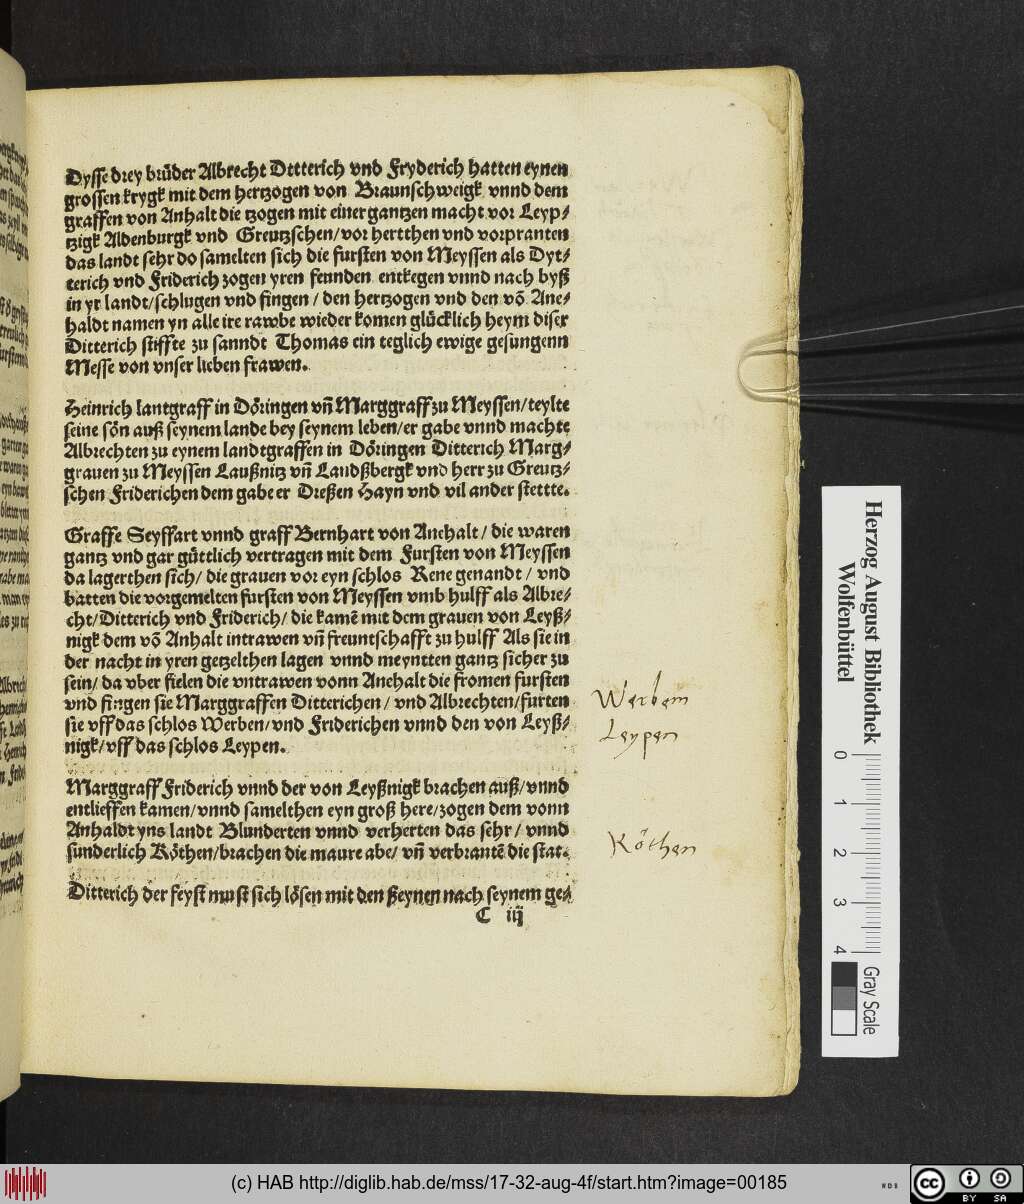 Dysse drey brüder Albrecht Dttterich vnd Fryderich hatten eynen
grossen krygk mit dem hertzogen von Braunschweigk vnnd dem
graffen von Anhalt die tzogen mit einer gantzen macht vor Leyp⸗
tzigk Aldenburgk vnd Greutzschen/vor hertthen vnd vorpranten
das landt sehr do samelten sich die fursten von Meyssen als Dyt⸗
terich vnd Friderich zogen yren feunden entkegen vnnd nach byß
in yr landt/schlugen vnd fingen / den hertzogen vnd den võ Ane⸗
haldt namen yn alle ire rawbe wieder komen glücklich heym diser
Ditterich stiffte zu sanndt Thomas ein teglich ewige gesungenn
Messe von vnser lieben frawen.
Heinrich lantgraff in Döringen vñ Marggraff zu Meyssen/teylte
seine sön auß seynem lande bey seynem leben/er gabe vnnd machte
Albrechten zu eynem landtgraffen in Döringen Ditterich Marg⸗
grauen zu Meyssen Laußnitz vñ Landßbergk vnd herr zu Greutz⸗
schen Friderichen dem gabe er Dreßen Hayn vnd vil ander stettte.
Graffe Seyffart vnnd graff Bernhart von Anehalt / die waren
gantz vnd gar güttlich vertragen mit dem Fursten von Meyssen
da lagerthen sich/ die grauen vor eyn schlos Rene genandt / vnd
batten die vorgemelten fursten von Meyssen vmb hulff als Albre⸗
cht/Ditterich vnd Friderich/ die kamē mit dem grauen von Leyß⸗
nigk dem võ Anhalt intrawen vñ freuntschafft zu hulff Als sie in
der nacht in yren getzelthen lagen vnnd meyntten gantz sicher zu
sein/ da vber fielen die vntrawen vonn Anehalt die fromen fursten
vnd fingen sie Marggraffen Ditterichen/ vnd Albrechten/furten
sie vff das schlos Werben/vnd Friderichen vnnd den von Leyß⸗
nigk/vff das schlos Leypen.
Werbem
Leypen
Marggraff Friderich vnnd der von Leyßnigk brachen auß/vnnd
entlieffen kamen/vnnd samelthen eyn groß here/zogen dem vonn
Anhaldt yns landt Blunderten vnnd verherten das sehr/ vnnd
sunderlich Köthen/brachen die maure abe/ vñ verbrantē die stat.
Köthen
Ditterich der feyst must sich lösen mit den ßeynen nach seynem ge⸗
C iij
Herzog August Bibliothek
Wolfenbüttel
0 1 2 3 4
Gray Scale
(c) HAB http://diglib.hab.de/mss/17-32-aug-4f/start.htm?image=00185
WDB
cc BY SA